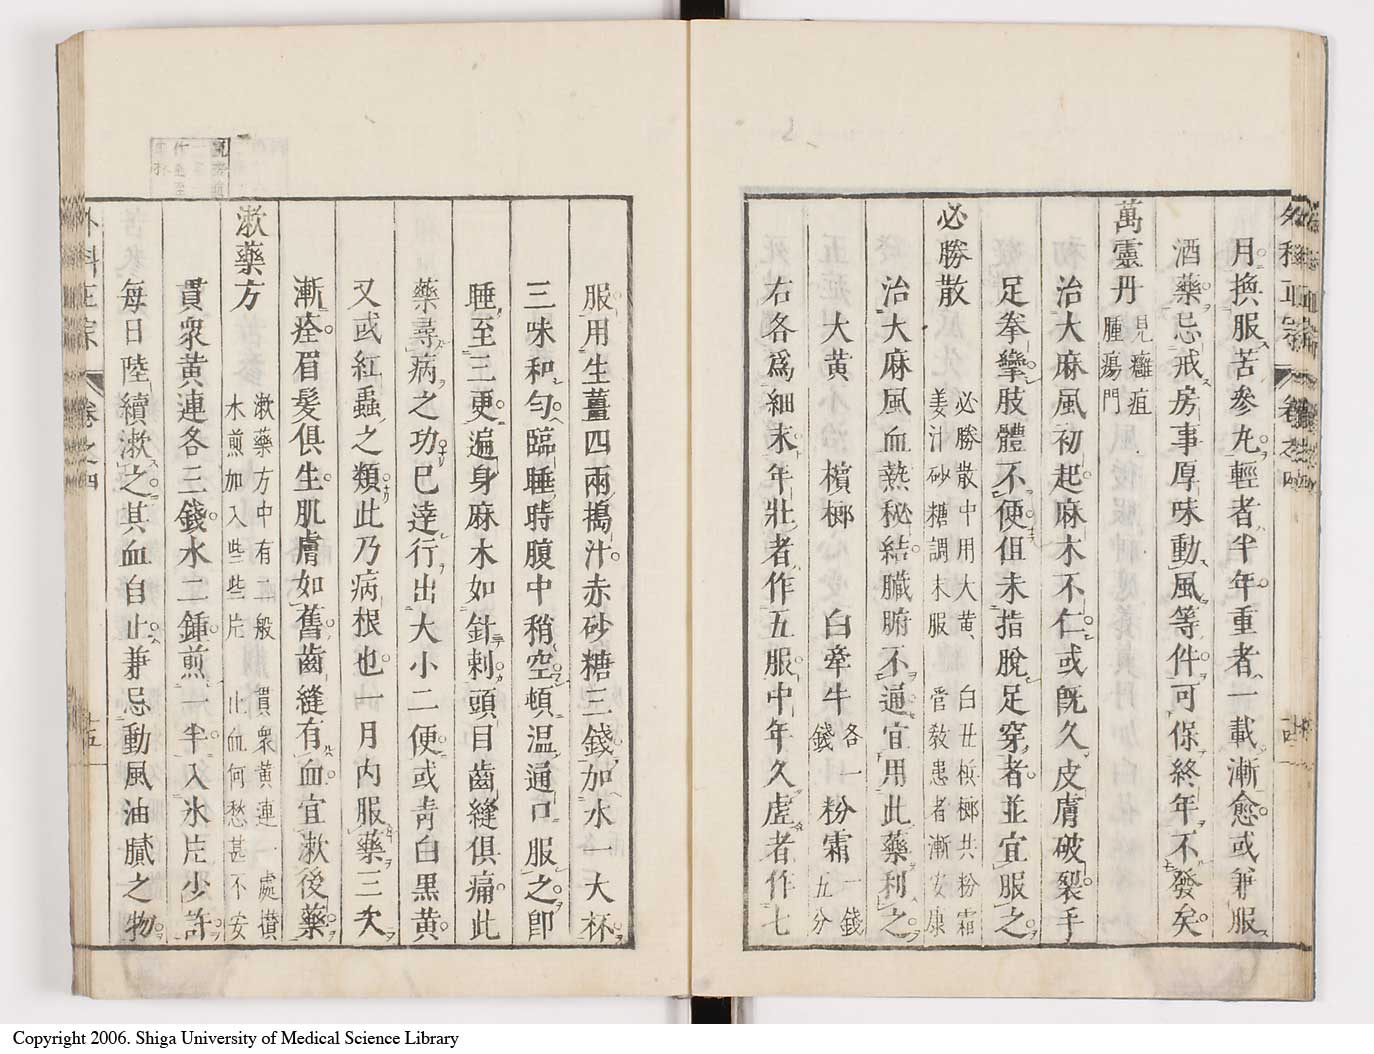 月換服苦參丸輕者半年重者一載漸愈或兼服
酒藥忌戒房事厚味動風等件可保終年不發矣
萬靈丹 見癰疽腫瘍門
治大麻風初起麻木不仁或既久皮膚破裂手
足拳攣肢體不便但未指脫足穿者並宜服之
必勝散 必勝散中用大黃 白丑檳榔共粉霜
姜汁砂糖調末服 管敎患者漸安康
治大麻風血熱秘結臟腑不通宜用此藥利之
大黃 檳榔 白牽牛 各一錢 粉霜 一錢五分
右各爲細末年壯者作五服中年久虛者作七
服用生薑四兩搗汁赤砂糖三錢加水一大杯
三味和勻臨睡時腹中稍空頓溫通口服之卽
睡至三更遍身麻木如針刺頭目齒縫俱痛此
藥尋病之功巳達行出大小二便或靑白黑黃
又或紅蟲之類此乃病根也一月內服藥三次
漸痊眉髮俱生肌膚如舊齒縫有血宜漱後藥
漱藥方 漱藥方中有二般 貫衆黃連一處攢
水煎加入些些片 止血何愁甚不安
貫衆黃連各三錢水二鍾煎一半入氷片少許
每日陸續漱之其血自止兼忌動風油膩之物
外科正宗 卷之四
Copyright 2006. Shiga University of Medical Science Library